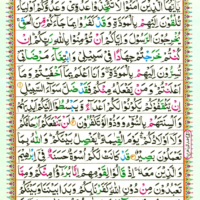 يٰۤاَيُّهَا الَّذِيْنَ اٰمَنُوْا لَا تَتَّخِذُوْا عَدُوِّيْ وَعَدُوَّكُمْ اَوْلِيَآءَ
تُلْقُوْنَ اِلَيْهِمْ بِالْمَوَدَّةِ وَقَدْ كَفَرُوْا بِمَا جَآءَكُمْ مِّنَ الْحَقِّ
يُخْرِجُوْنَ الرَّسُوْلَ وَاِيَّاكُمْ اَنْ تُؤْمِنُوْا بِاللّٰهِ رَبِّكُمْ اِنْ
كُنْتُمْ خَرَجْتُمْ جِهَادًا فِيْ سَبِيْلِيْ وَابْتِغَآءَ مَرْضَاتِيْ
تُسِرُّوْنَ اِلَيْهِمْ بِالْمَوَدَّةِ وَاَنَا اَعْلَمُ بِمَاۤ اَخْفَيْتُمْ وَمَاۤ
اَعْلَنْتُمْ وَمَنْ يَّفْعَلْهُ مِنْكُمْ فَقَدْ ضَلَّ سَوَآءَ السَّبِيْلِ اِنْ
يَّثْقَفُوْكُمْ يَكُوْنُوْا لَكُمْ اَعْدَآءً وَّيَبْسُطُوْۤا اِلَيْكُمْ اَيْدِيَهُمْ
وَاَلْسِنَتَهُمْ بِالسُّوْٓءِ وَوَدُّوْا لَوْ تَكْفُرُوْنَ لَنْ تَنْفَعَكُمْ اَرْحَامُكُمْ
وَلَاۤ اَوْلَادُكُمْ يَوْمَ الْقِيٰمَةِ يَفْصِلُ بَيْنَكُمْ وَاللّٰهُ بِمَا
تَعْمَلُوْنَ بَصِيْرٌ قَدْ كَانَتْ لَكُمْ اُسْوَةٌ حَسَنَةٌ فِيْۤ اِبْرٰهِيْمَ
وَالَّذِيْنَ مَعَهٗ اِذْ قَالُوْا لِقَوْمِهِمْ اِنَّا بُرَءٰٓؤُا مِنْكُمْ وَمِمَّا
تَعْبُدُوْنَ مِنْ دُوْنِ اللّٰهِ كَفَرْنَا بِكُمْ وَبَدَا بَيْنَنَا وَبَيْنَكُمُ